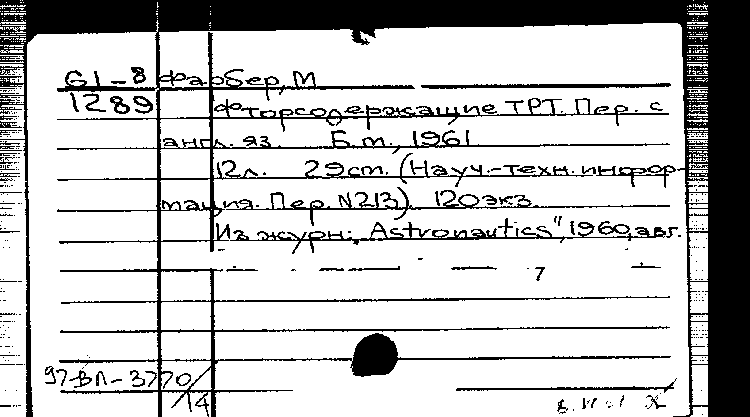 61-8 Фарбер, М
1289 Фторсодержащие ТРТ. Пер. с
англ. яз. Б.м., 1961
12л. 29см. (Науч.-техн. инфор-
мация. Пер. N213). 120экз.
Из журн: „Astronautics", 1960, авг.
7
97-ВЛ-3770/14